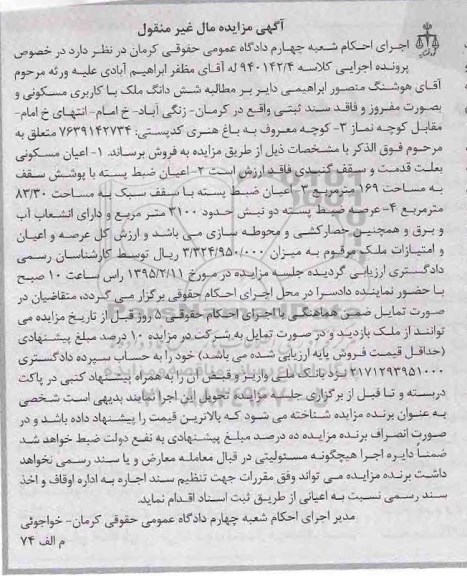 آگهی مزایده مال غیر منقول
اجرای احکام شعبه چهارم دادگاه عمومی حقوقی کرمان در نظر دارد در خصوص
پرونده اجرایی کلاسه ۹۴۰۱۴۲/۴ له آقای مظفر ابراهیم آبادی علیه ورثه مرحوم
آقای هوشنگ منصور ابراهیمی دایر بر مطالبه شش دانگ ملک با کاربری مسکونی و
بصورت مفروز و فاقد سند ثبتی واقع در کرمان- زنگی آباد- خ امام- انتهای خ امام-
مقابل کوچه نماز ۳- کوچه معروف به باغ هنری کدپستی: ۷۶۳۹۱۴۲۷۳۴ متعلق به
مرحوم فوق الذکر با مشخصات ذیل از طریق مزایده به فروش برساند. ۱- اعیان مسکونی
بعلت قدمت و سقف گنبدی فاقد ارزش است ۲- اعیان ضبط پسته با پوشش سقف
به مساحت ۱۶۹ مترمربع ۳- اعیان ضبط پسته با سقف سبک به مساحت ۸۳/۳۰
مترمربع ۴- عرصه ضبط پسته دو نبش حدود ۳۱۰۰ متر مربع و دارای انشعاب آب
و برق و همچنین حصارکشی و محوطه سازی می باشد و ارزش کل عرصه و اعیان
و امتیازات ملک مرقوم به میزان ۳/۳۲۴/۹۵۰/۰۰۰ ریال توسط کارشناسان رسمی
دادگستری ارزیابی گردیده جلسه مزایده در مورخ ۱۳۹۵/۲/۱۱ راس ساعت ۱۰ صبح
با حضور نماینده دادسرا در محل اجرای احکام حقوقی برگزار می گردد، متقاضیان در
صورت تمایل ضمن هماهنگی با اجرای احکام حقوقی ۵ روز قبل از تاریخ مزایده می
توانند از ملک بازدید و در صورت تمایل به شرکت در مزایده ۱۰ درصد مبلغ پیشنهادی
(حداقل قیمت فروش پایه ارزیابی شده می باشد) خود را به حساب سپرده دادگستری
۲۱۷۱۲۹۳۹۵۱۰۰۰ نزد بانک ملی واریز و قبض آن را به همراه پیشنهاد کتبی در پاکت
دربسته و تا قبل از برگزاری جلسه مزایده تحویل این اجرا نمایند بدیهی است شخصی
به عنوان برنده مزایده شناخته می شود که بالاترین قیمت را پیشنهاد داده باشد و در
صورت انصراف برنده مزایده ده درصد مبلغ پیشنهادی به نفع دولت ضبط خواهد شد
ضمنا دایره اجرا هیچگونه مسئولیتی در قبال معامله معارض و یا سند رسمی نخواهد
داشت برنده مزایده می تواند وفق مقررات جهت تنظیم سند اجاره به اداره اوقاف و اخذ
سند رسمی نسبت به اعیانی از طریق ثبت اسناد اقدام نماید.
مدیر اجرای احکام شعبه چهارم دادگاه عمومی حقوقی کرمان- خواجوئی
م الف ۷۴